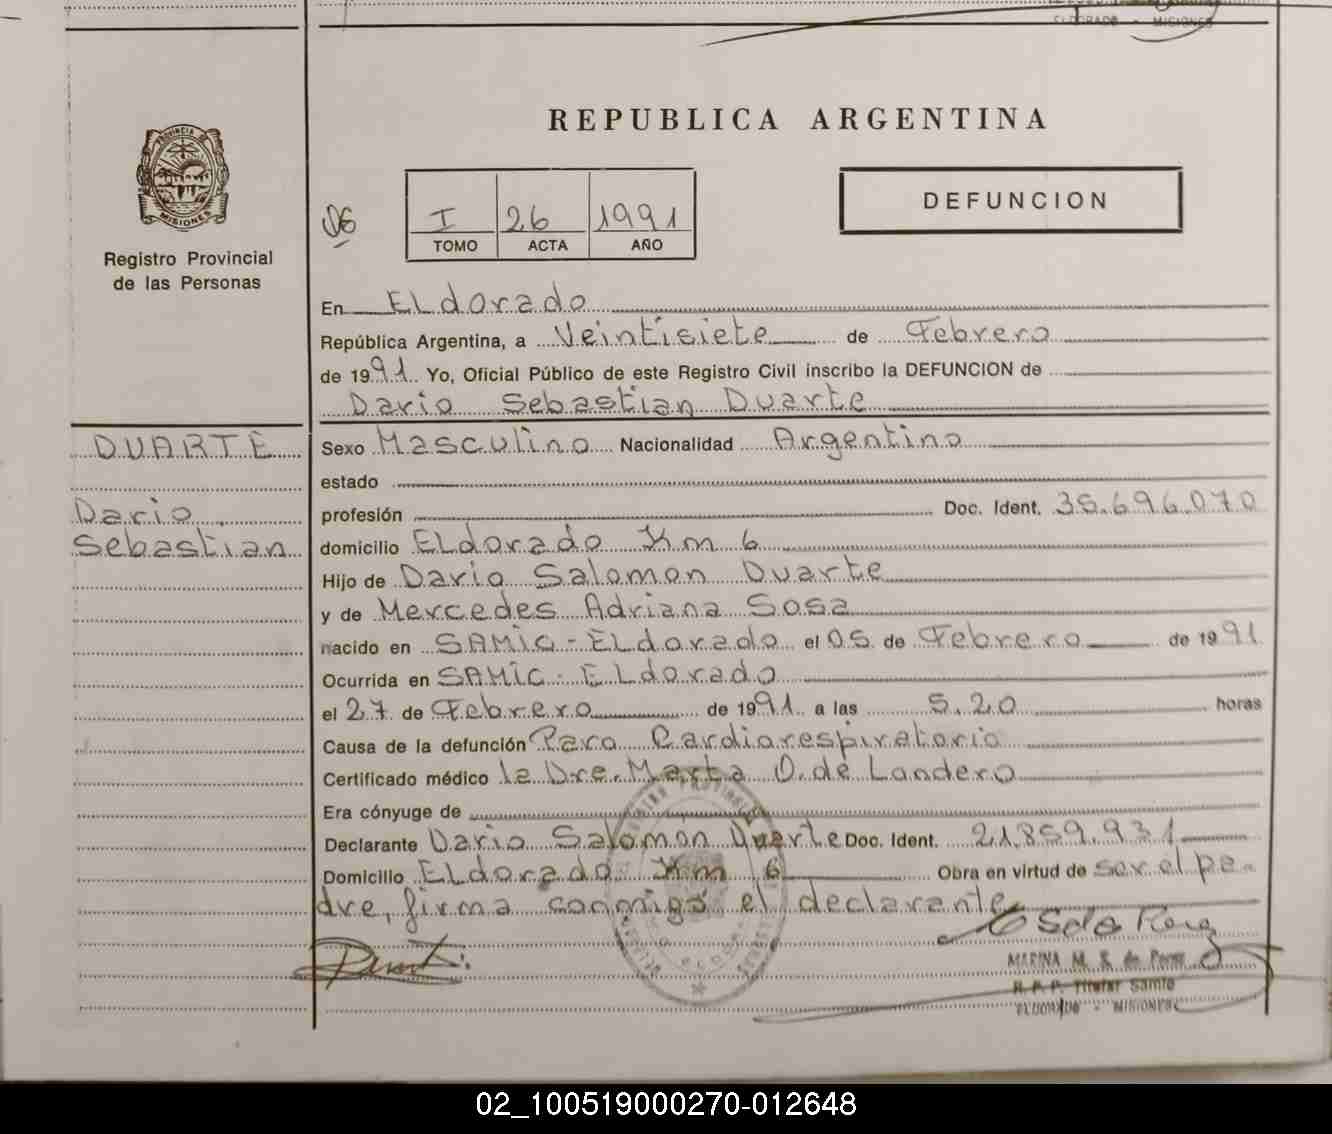 ELDORADO - MISIONES
REPUBLICA ARGENTINA
PROVINCIA DE
MISIONES
Registro Provincial
de las Personas
06
I 26 1991
TOMO ACTA AÑO
DEFUNCION
En ELdorado
República Argentina, a Veintisiete de Febrero
de 1991. Yo, Oficial Público de este Registro Civil inscribo la DEFUNCION de
Dario Sebastian Duarte
DUARTE
Dario
Sebastian
Sexo Masculino Nacionalidad Argentino
estado
profesión Doc. Ident. 35.696.070
domicilio ELdorado Km 6
Hijo de Dario Salomon Duarte
y de Mercedes Adriana Sosa
nacido en SAMIC - ELdorado el 05 de Febrero de 1991
Ocurrida en SAMIC - ELdorado
el 27 de Febrero de 1991 a las 5.20 horas
Causa de la defunción Paro Cardiorespiratorio
Certificado médico la Dra. Marta O. de Landero
Era cónyuge de
Declarante Dario Salomon Duarte Doc. Ident. 21.859.931
Domicilio ELdorado Km 6 Obra en virtud de ser el pa-
dre, firma conmigo el declarante
MARINA M. S. de
R. P. P. Titular Samic
ELDORADO - MISIONES
02_100519000270-012648